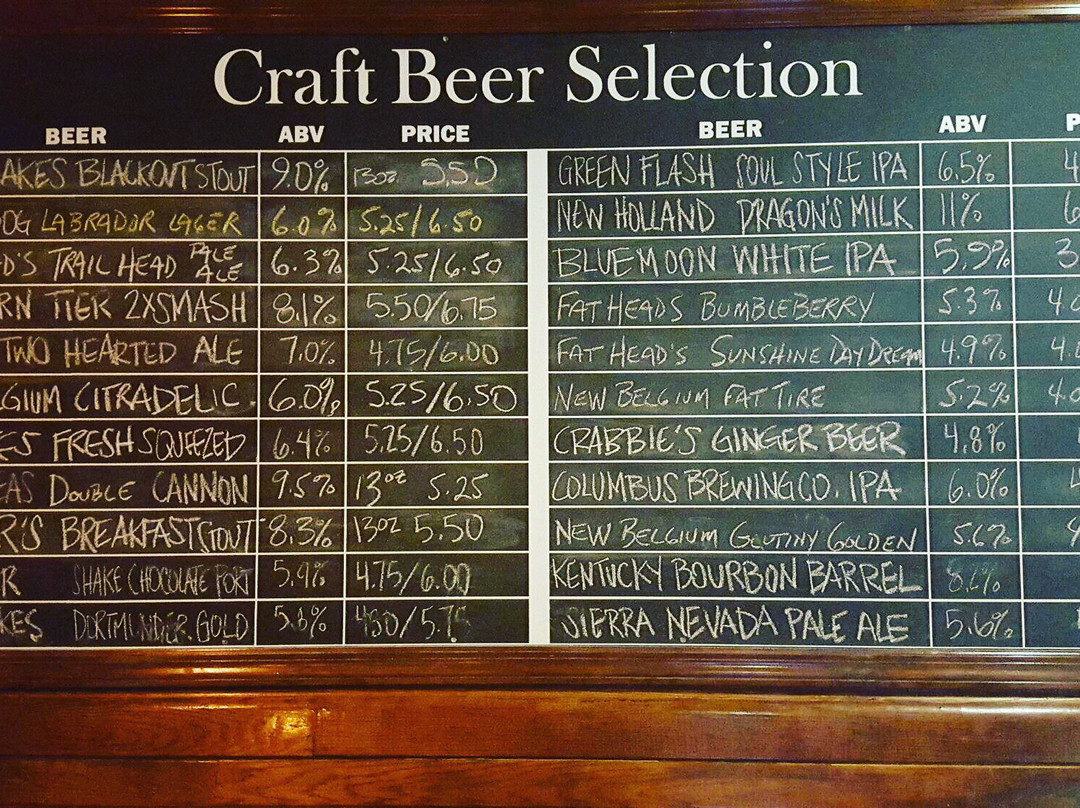 Craft Beer Selection
BEER ABV PRICE
AKES BLACKOUT STOUT 9.0% 13oz 5.50
OG LABRADOR LAGER 6.0% 5.25/6.50
D'S TRAIL HEAD PALE ALE 6.3% 5.25/6.50
RN TIER 2XSMASH 8.1% 5.50/6.75
TWO HEARTED ALE 7.0% 4.75/6.00
GIUM CITRADELIC 6.0% 5.25/6.50
ES FRESH SQUEEZED 6.4% 5.25/6.50
EAS DOUBLE CANNON 9.5% 13oz 5.25
R'S BREAKFAST STOUT 8.3% 13oz 5.50
R SHAKE CHOCOLATE PORT 5.9% 4.75/6.00
KES DORTMUNDER GOLD 5.8% 4.50/5.75
BEER ABV P
GREEN FLASH SOUL STYLE IPA 6.5% 4
NEW HOLLAND DRAGON'S MILK 11% 6
BLUEMOON WHITE IPA 5.9% 3
FAT HEADS BUMBLEBERRY 5.3% 4.0
FAT HEAD'S SUNSHINE DAYDREAM 4.9% 4.
NEW BELGIUM FAT TIRE 5.2% 4.0
CRABBIE'S GINGER BEER 4.8%
COLUMBUS BREWING CO. IPA 6.0%
NEW BELGIUM GLUTINY GOLDEN 5.6%
KENTUCKY BOURBON BARREL 8.2%
SIERRA NEVADA PALE ALE 5.6%